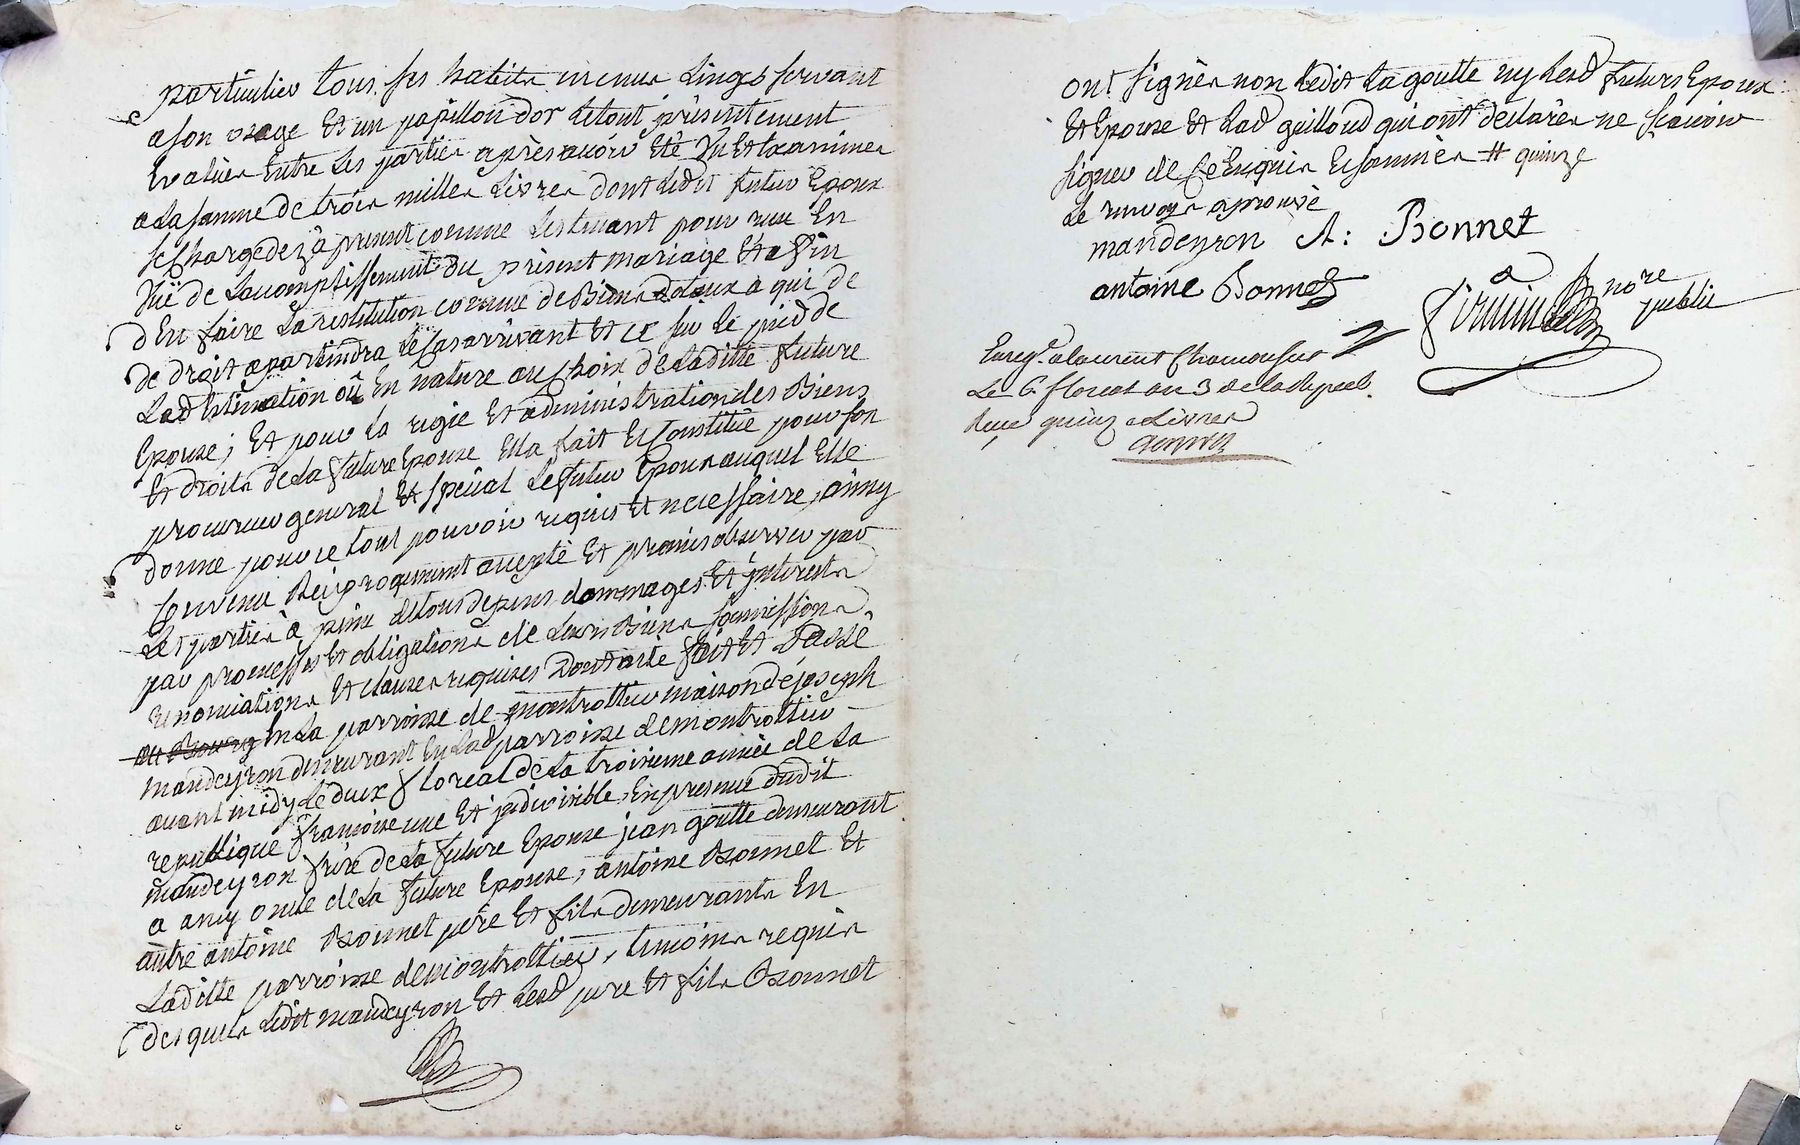 particulier tous ses habits menus linges servant
a son usage Et un papillon d'or le tout présentement
Evalués Entre les parties après avoir Eté Vu Et Examinés
a la somme de trois milles Livres dont ledit futur Epoux
se Charge dez à present comme les tenant pour reçu En
Vuë de Lacomplissement du présent mariage Et affin
d'En faire la restitution comme de Biens dotaux a qui de
de droit apartiendra le Cas arrivant Et ce sur le pied de
Lad Estimation où En nature au Choix de Laditte future
Epouse; Et pour la regie Et administration des Biens
Et droits de La future Epouse Ella fait Et Constitué pour son
procureur general Et special Le futur Epoux auquel Elle
donne pour ce tout pouvoir requis Et necessaire, ainsy
Convenu Reciproquement accepté Et promis observer par
Les parties à peine de tous depens dommages Et interests
par promesses Et obligations de Leurs Biens soumissions
renonciations Et clauses requises Dont acte fait Et Passé
au Bourg En La parroisse de montrottier maison de joseph
mandeyron demeurant En Lad parroisse de montrottier
avant midy Le deux floreal de La troisieme année de La
republique françoise une Et indivisible, En presence dudit
mandeyron frère de La future Epouse jean goutte demeurant
a ancy oncle de La future Epouse, antoine Bonnet Et
autre antoine Bonnet père Et fils demeurants En
Laditte parroisse de montrottier, temoins requis
desquels Ledit mandeyron Et Lesd pere Et fils Bonnet
ont signés non Ledit La goutte ny Lesd futurs Epoux
Et Epouse Et Lad guilloud qui ont déclarés ne sçavoir
signer de Ce Enquis Et sommés # quinze
Le renvoye aprouvé
mandeyron A: Bonnet
antoine Bonnet
nore
public
Enregé a Laurent Chamousset
Le 6 floreal an 3 de la Repub.
Reçu quinze Livres